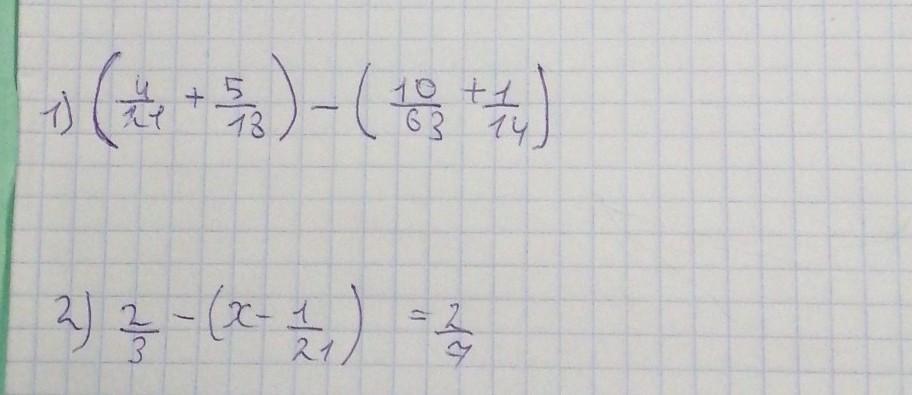 1) (4/21 + 5/18) - (10/63 + 1/14)
2) 2/3 - (x - 1/21) = 2/7